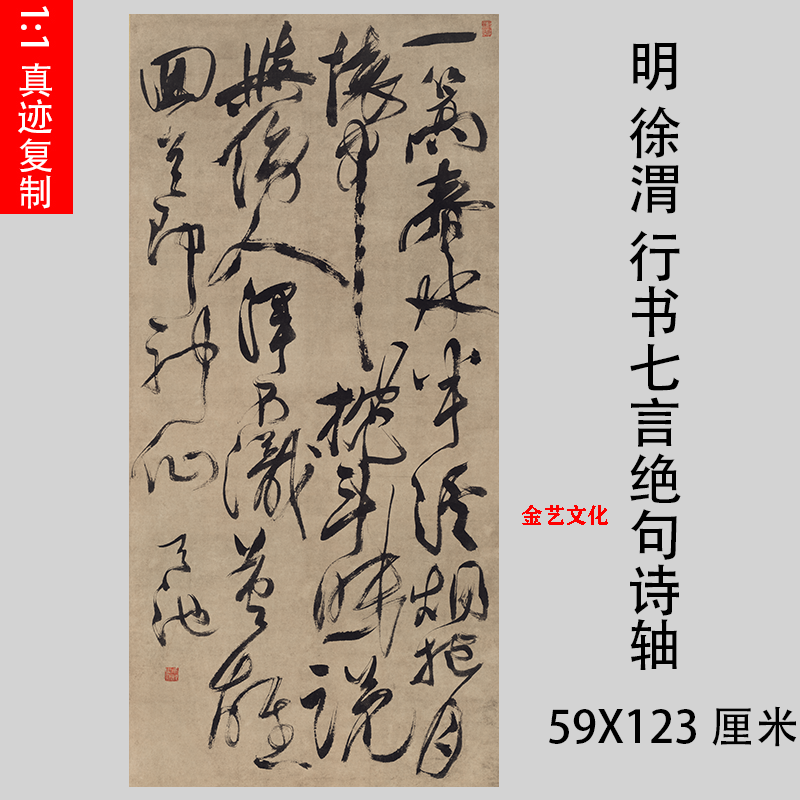 1:1 真迹复制
明 徐渭 行书七言绝句诗轴
59X123 厘米
金艺文化
一篙春水半溪烟抱月
懷中枕斗眠說
與傍人渾不識英雄
回首即神仙
天池